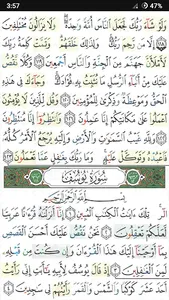 3:57 47%
وَلَوْ شَآءَ رَبُّكَ لَجَعَلَ ٱلنَّاسَ أُمَّةً وَٰحِدَةً ۖ وَلَا يَزَالُونَ مُخْتَلِفِينَ
١١٨ إِلَّا مَن رَّحِمَ رَبُّكَ ۚ وَلِذَٰلِكَ خَلَقَهُمْ ۗ وَتَمَّتْ كَلِمَةُ رَبِّكَ
لَأَمْلَأَنَّ جَهَنَّمَ مِنَ ٱلْجِنَّةِ وَٱلنَّاسِ أَجْمَعِينَ ١١٩ وَكُلًّا نَّقُصُّ
عَلَيْكَ مِنْ أَنۢبَآءِ ٱلرُّسُلِ مَا نُثَبِّتُ بِهِۦ فُؤَادَكَ ۚ وَجَآءَكَ فِى هَٰذِهِ
ٱلْحَقُّ وَمَوْعِظَةٌ وَذِكْرَىٰ لِلْمُؤْمِنِينَ ١٢٠ وَقُل لِّلَّذِينَ لَا يُؤْمِنُونَ
ٱعْمَلُوا۟ عَلَىٰ مَكَانَتِكُمْ إِنَّا عَٰمِلُونَ ١٢١ وَٱنتَظِرُوٓا۟ إِنَّا مُنتَظِرُونَ
١٢٢ وَلِلَّهِ غَيْبُ ٱلسَّمَٰوَٰتِ وَٱلْأَرْضِ وَإِلَيْهِ يُرْجَعُ ٱلْأَمْرُ كُلُّهُۥ
فَٱعْبُدْهُ وَتَوَكَّلْ عَلَيْهِ ۚ وَمَا رَبُّكَ بِغَٰفِلٍ عَمَّا تَعْمَلُونَ ١٢٣
سُورَةُ يُوسُفَ
بِسْمِ ٱللَّهِ ٱلرَّحْمَٰنِ ٱلرَّحِيمِ
الٓر ۚ تِلْكَ ءَايَٰتُ ٱلْكِتَٰبِ ٱلْمُبِينِ ١ إِنَّآ أَنزَلْنَٰهُ قُرْءَٰنًا عَرَبِيًّا
لَّعَلَّكُمْ تَعْقِلُونَ ٢ نَحْنُ نَقُصُّ عَلَيْكَ أَحْسَنَ ٱلْقَصَصِ
بِمَآ أَوْحَيْنَآ إِلَيْكَ هَٰذَا ٱلْقُرْءَانَ وَإِن كُنتَ مِن قَبْلِهِۦ
لَمِنَ ٱلْغَٰفِلِينَ ٣ إِذْ قَالَ يُوسُفُ لِأَبِيهِ يَٰٓأَبَتِ إِنِّى رَأَيْتُ
أَحَدَ عَشَرَ كَوْكَبًا وَٱلشَّمْسَ وَٱلْقَمَرَ رَأَيْتُهُمْ لِى سَٰجِدِينَ ٤